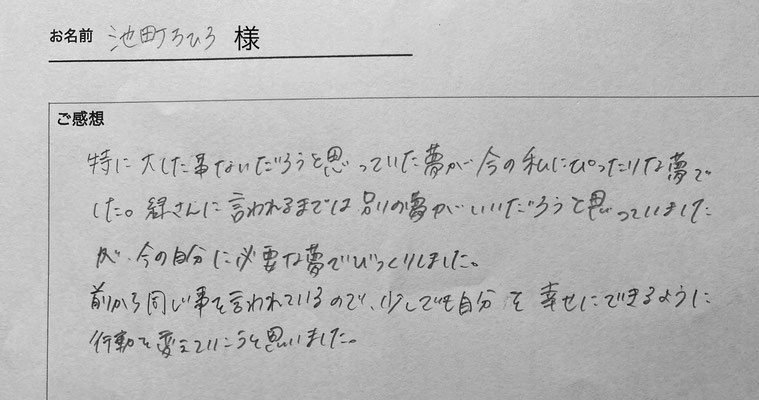 お名前 池町ちひろ 様
ご感想
特に大した事ないだろうと思っていた夢が今の私にぴったりな夢で
した。緑さんに言われるまでは別の夢がいいだろうと思っていました
が、今の自分に必要な夢でびっくりしました。
前から同じ事を言われているので、少しでも自分を幸せにできるように
行動を変えていこうと思いました。